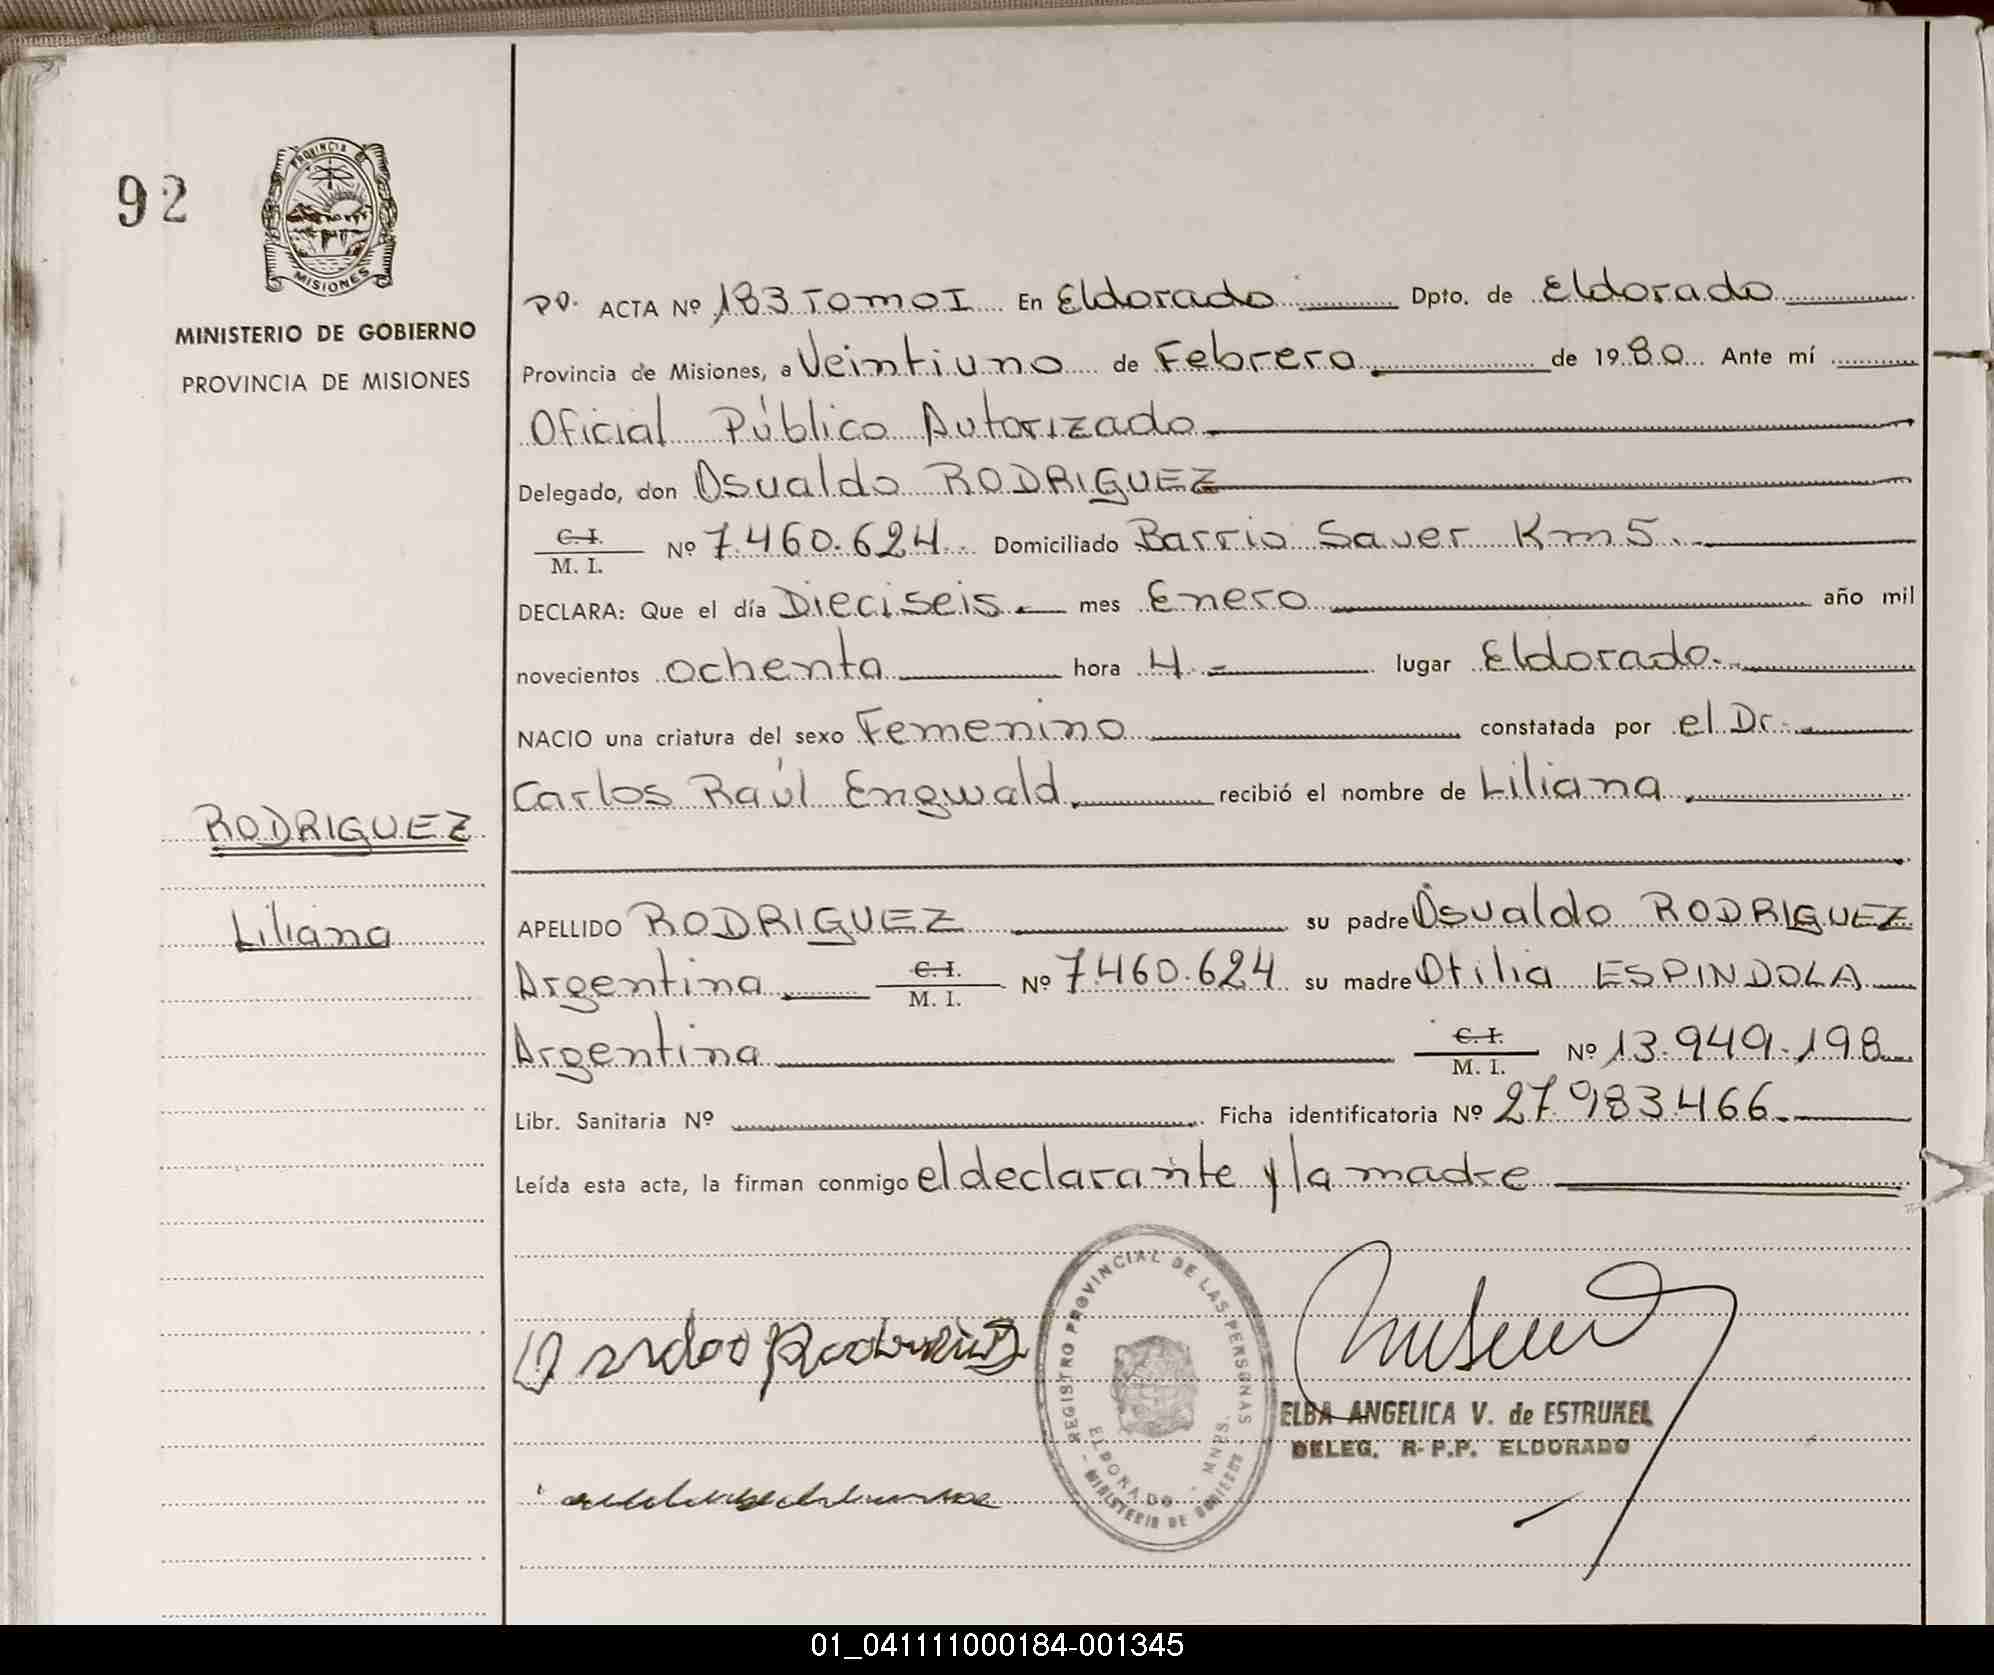 92
PROVINCIA DE
MISIONES
MINISTERIO DE GOBIERNO
PROVINCIA DE MISIONES
RODRIGUEZ
Liliana
ACTA Nº 183 Tomo I En Eldorado Dpto. de Eldorado
Provincia de Misiones, a Veintiuno de Febrero de 1980 Ante mí
Oficial Público Autorizado
Delegado, don Osualdo RODRIGUEZ
C.I.
M. I. Nº 7.460.624 Domiciliado Barrio Sauer Km 5.
DECLARA: Que el día Dieciseis mes Enero año mil
novecientos ochenta hora 4 lugar Eldorado.
NACIO una criatura del sexo Femenino constatada por el Dr.
Carlos Raúl Engwald recibió el nombre de Liliana
APELLIDO RODRIGUEZ su padre Osualdo RODRIGUEZ
Argentina C.I. M. I. Nº 7.460.624 su madre Otilia ESPINDOLA
Argentina C.I. M. I. Nº 13.949.198
Libr. Sanitaria Nº Ficha identificatoria Nº 27.983.466
Leída esta acta, la firman conmigo el declarante y la madre
REGISTRO PROVINCIAL DE LAS PERSONAS
ELDORADO - MNES.
- MINISTERIO DE GOBIERNO
ELBA ANGELICA V. de ESTRUKEL
DELEG. R-P.P. ELDORADO
01_041111000184-001345